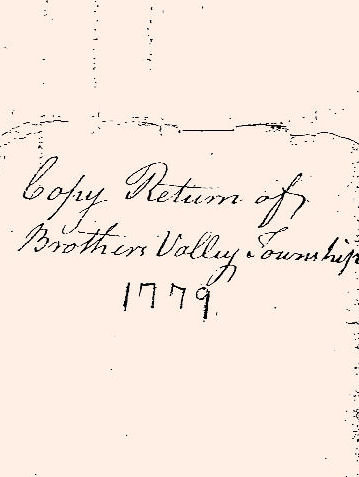 Copy Return of
Brothers Valley Township
1779.